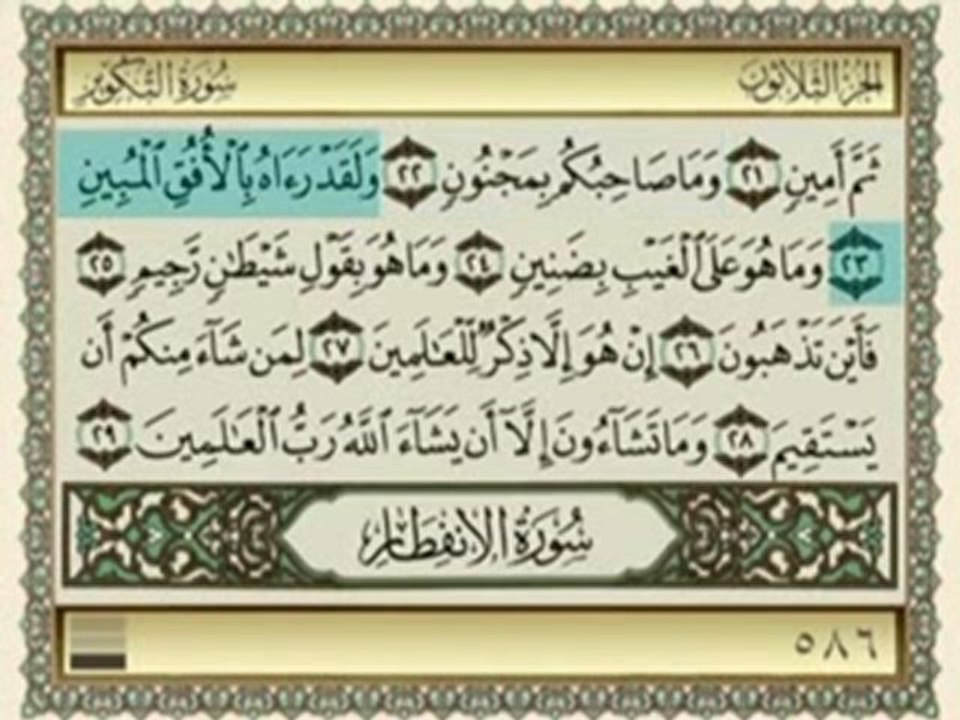 الجزء الثلاثون
سورة التكوير
ثَمَّ أَمِينٍ ٢١ وَمَا صَاحِبُكُم بِمَجْنُونٍ ٢٢ وَلَقَدْ رَءَاهُ بِٱلْأُفُقِ ٱلْمُبِينِ
٢٣ وَمَا هُوَ عَلَى ٱلْغَيْبِ بِضَنِينٍ ٢٤ وَمَا هُوَ بِقَوْلِ شَيْطَٰنٍ رَّجِيمٍ ٢٥
فَأَيْنَ تَذْهَبُونَ ٢٦ إِنْ هُوَ إِلَّا ذِكْرٌ لِّلْعَٰلَمِينَ ٢٧ لِمَن شَآءَ مِنكُمْ أَن
يَسْتَقِيمَ ٢٨ وَمَا تَشَآءُونَ إِلَّآ أَن يَشَآءَ ٱللَّهُ رَبُّ ٱلْعَٰلَمِينَ ٢٩
سُورَةُ الانفِطَارِ
٥٨٦